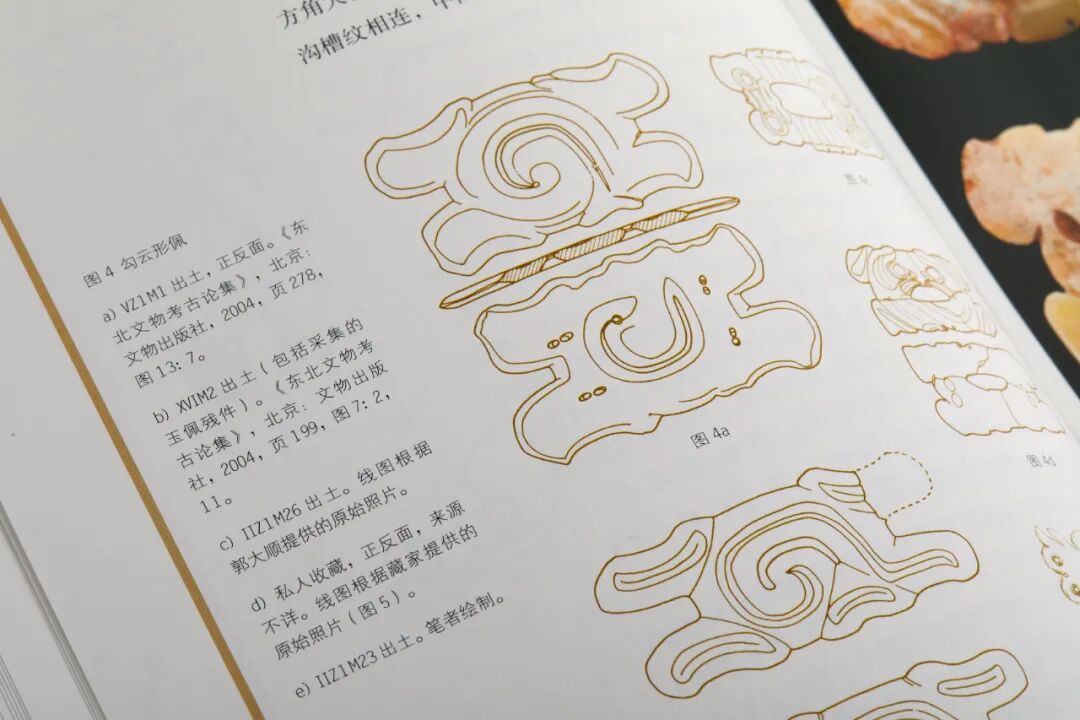 方角
沟槽纹相连，中
图 4 勾云形佩
a) VZ1M1 出土，正反面。《东
北文物考古论集》，北京：
文物出版社，2004，页 278，
图 13：7。
b) XVIM2 出土（包括采集的
玉佩残件）。《东北文物考
古论集》，北京：文物出版
社，2004，页 199，图 7：2，
11。
c) IIZ1M26 出土。线图根据
郭大顺提供的原始照片。
d) 私人收藏，正反面，来源
不详。线图根据藏家提供的
原始照片（图 5）。
e) IIZ1M23 出土。笔者绘制。
图 4a
图 4c
图 4d